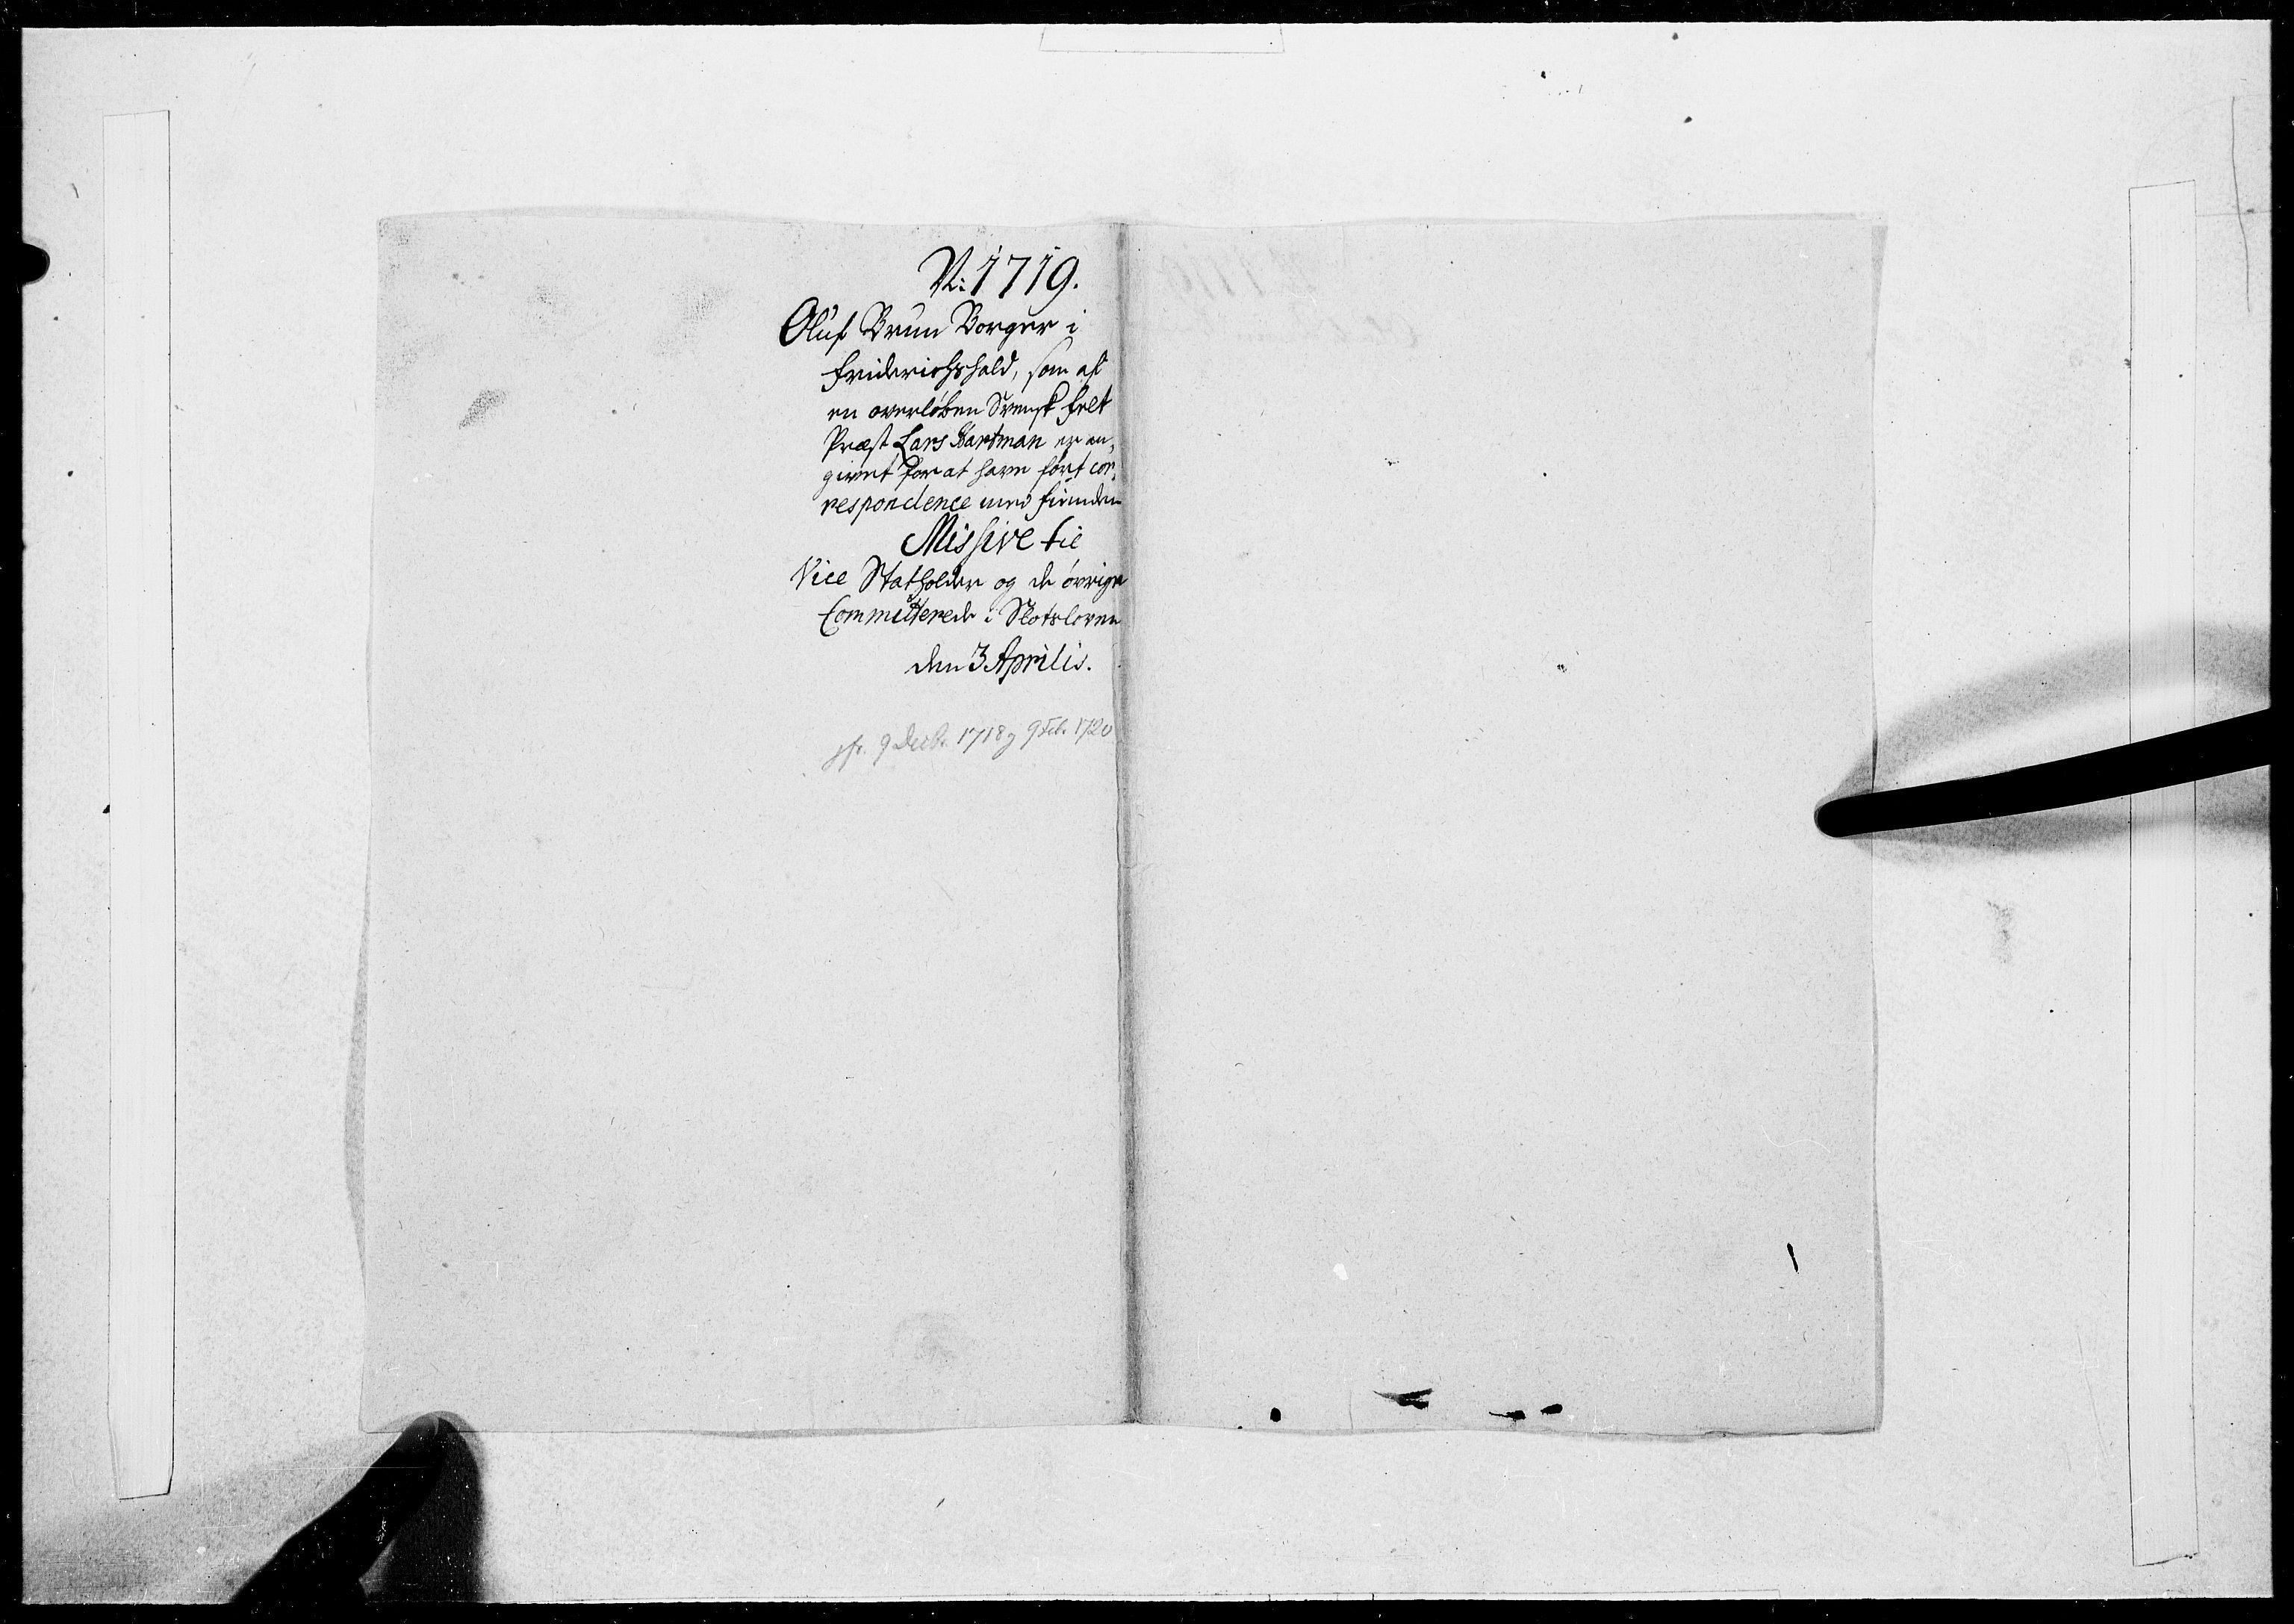 N: 1719.
Oluf Brun Borger i
Friderichshald, som af
en overløben Svensk felt
Præst Lars Hartman er an-
givet for at have ført cor-
respondence med fienden
Missive til
Vice Statholder og de øvrige
Committerede i Slotsloven
den 3 Aprilis.
jfr. 9 Decbr. 1718 9 Feb. 1720